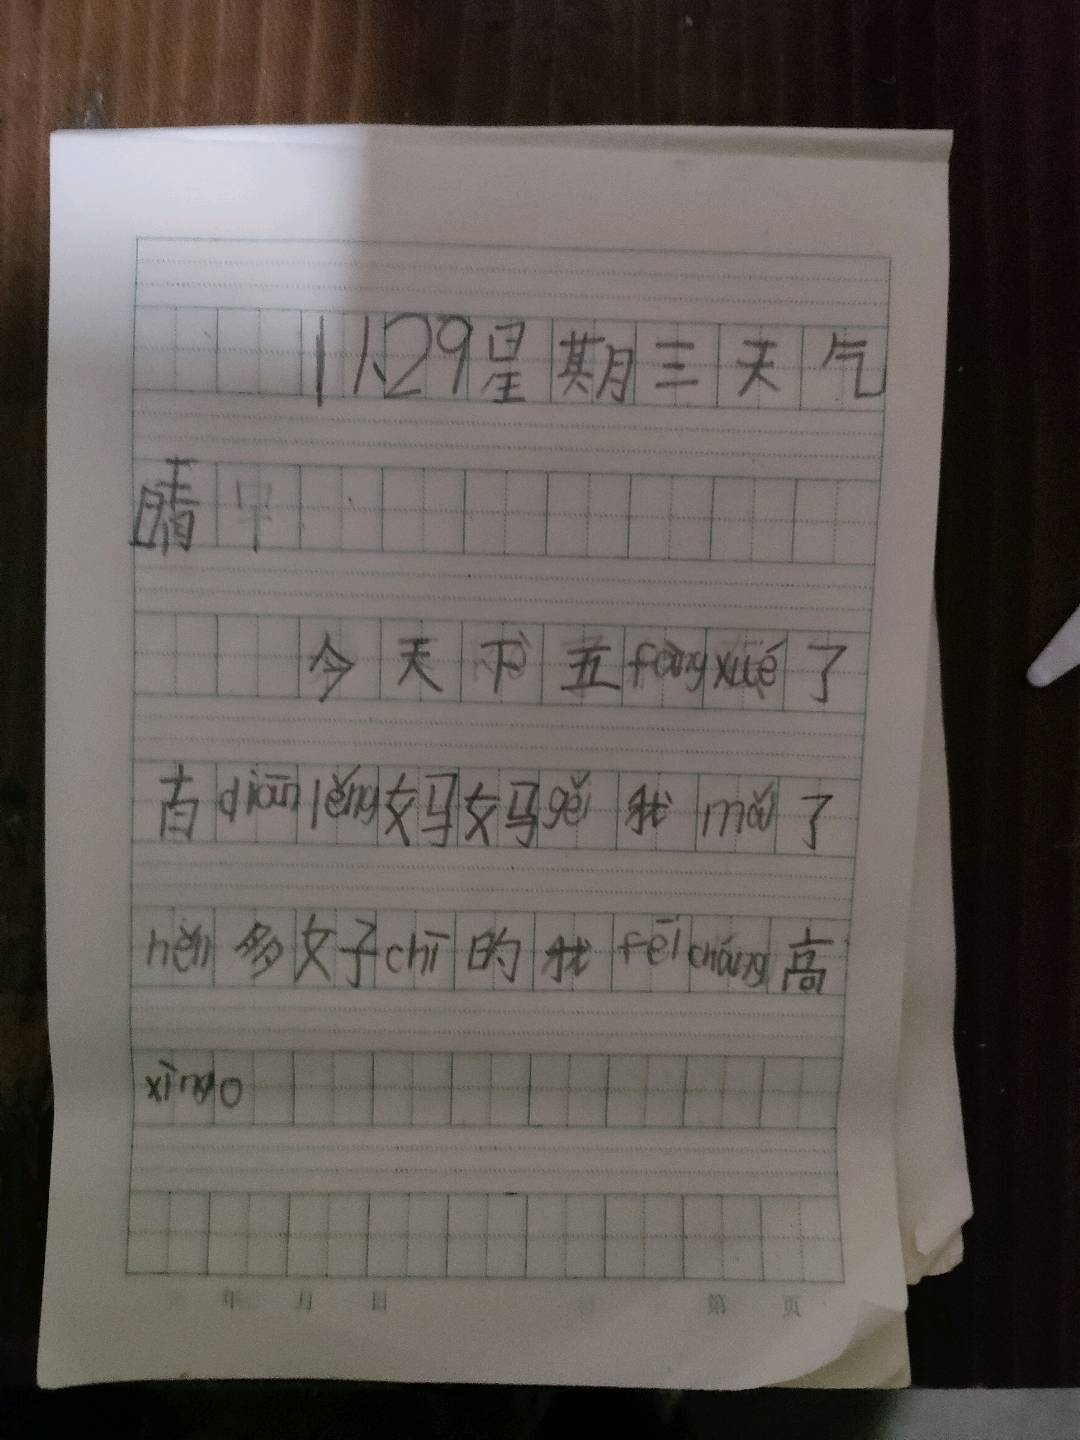 11.29星期三天气
晴
今天下五fàngxué了
有diānlěng妈妈gěi我mǎi了
hěn多好chī的我fēicháng高
xìng。
年 月 日 第 页